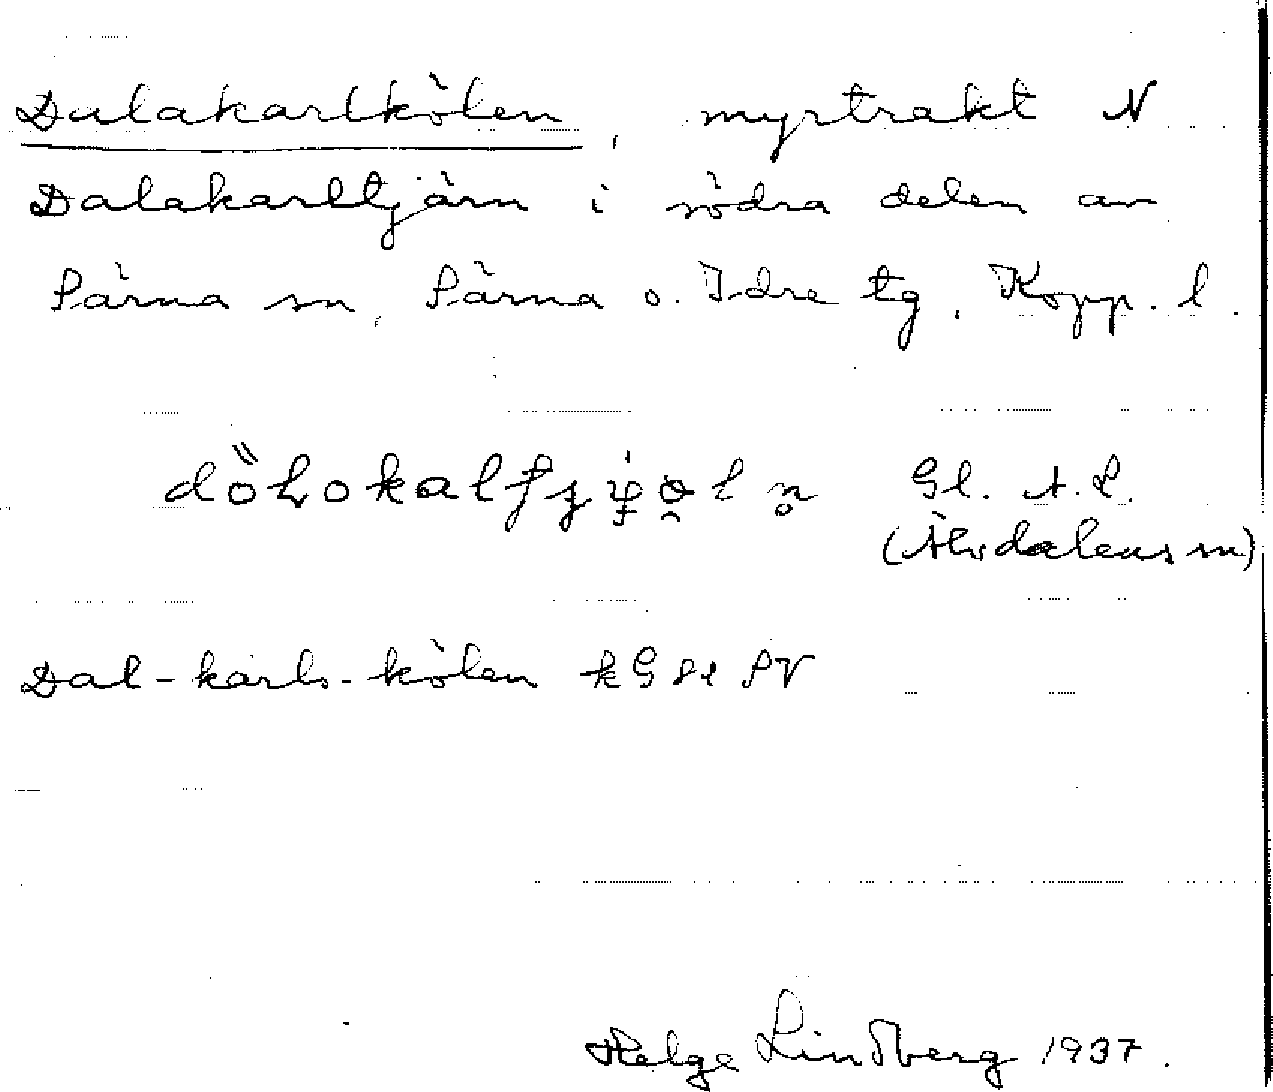 Dalakarlkölen, myrtrakt N
Dalakarltjärn i södra delen av
Särna sn, Särna o. Idre tg, Kopp. l.
Gl. A.L.
(Älvdalens sn)
Dal-karls-kölen kGSt SV
Helge Lindberg 1937.